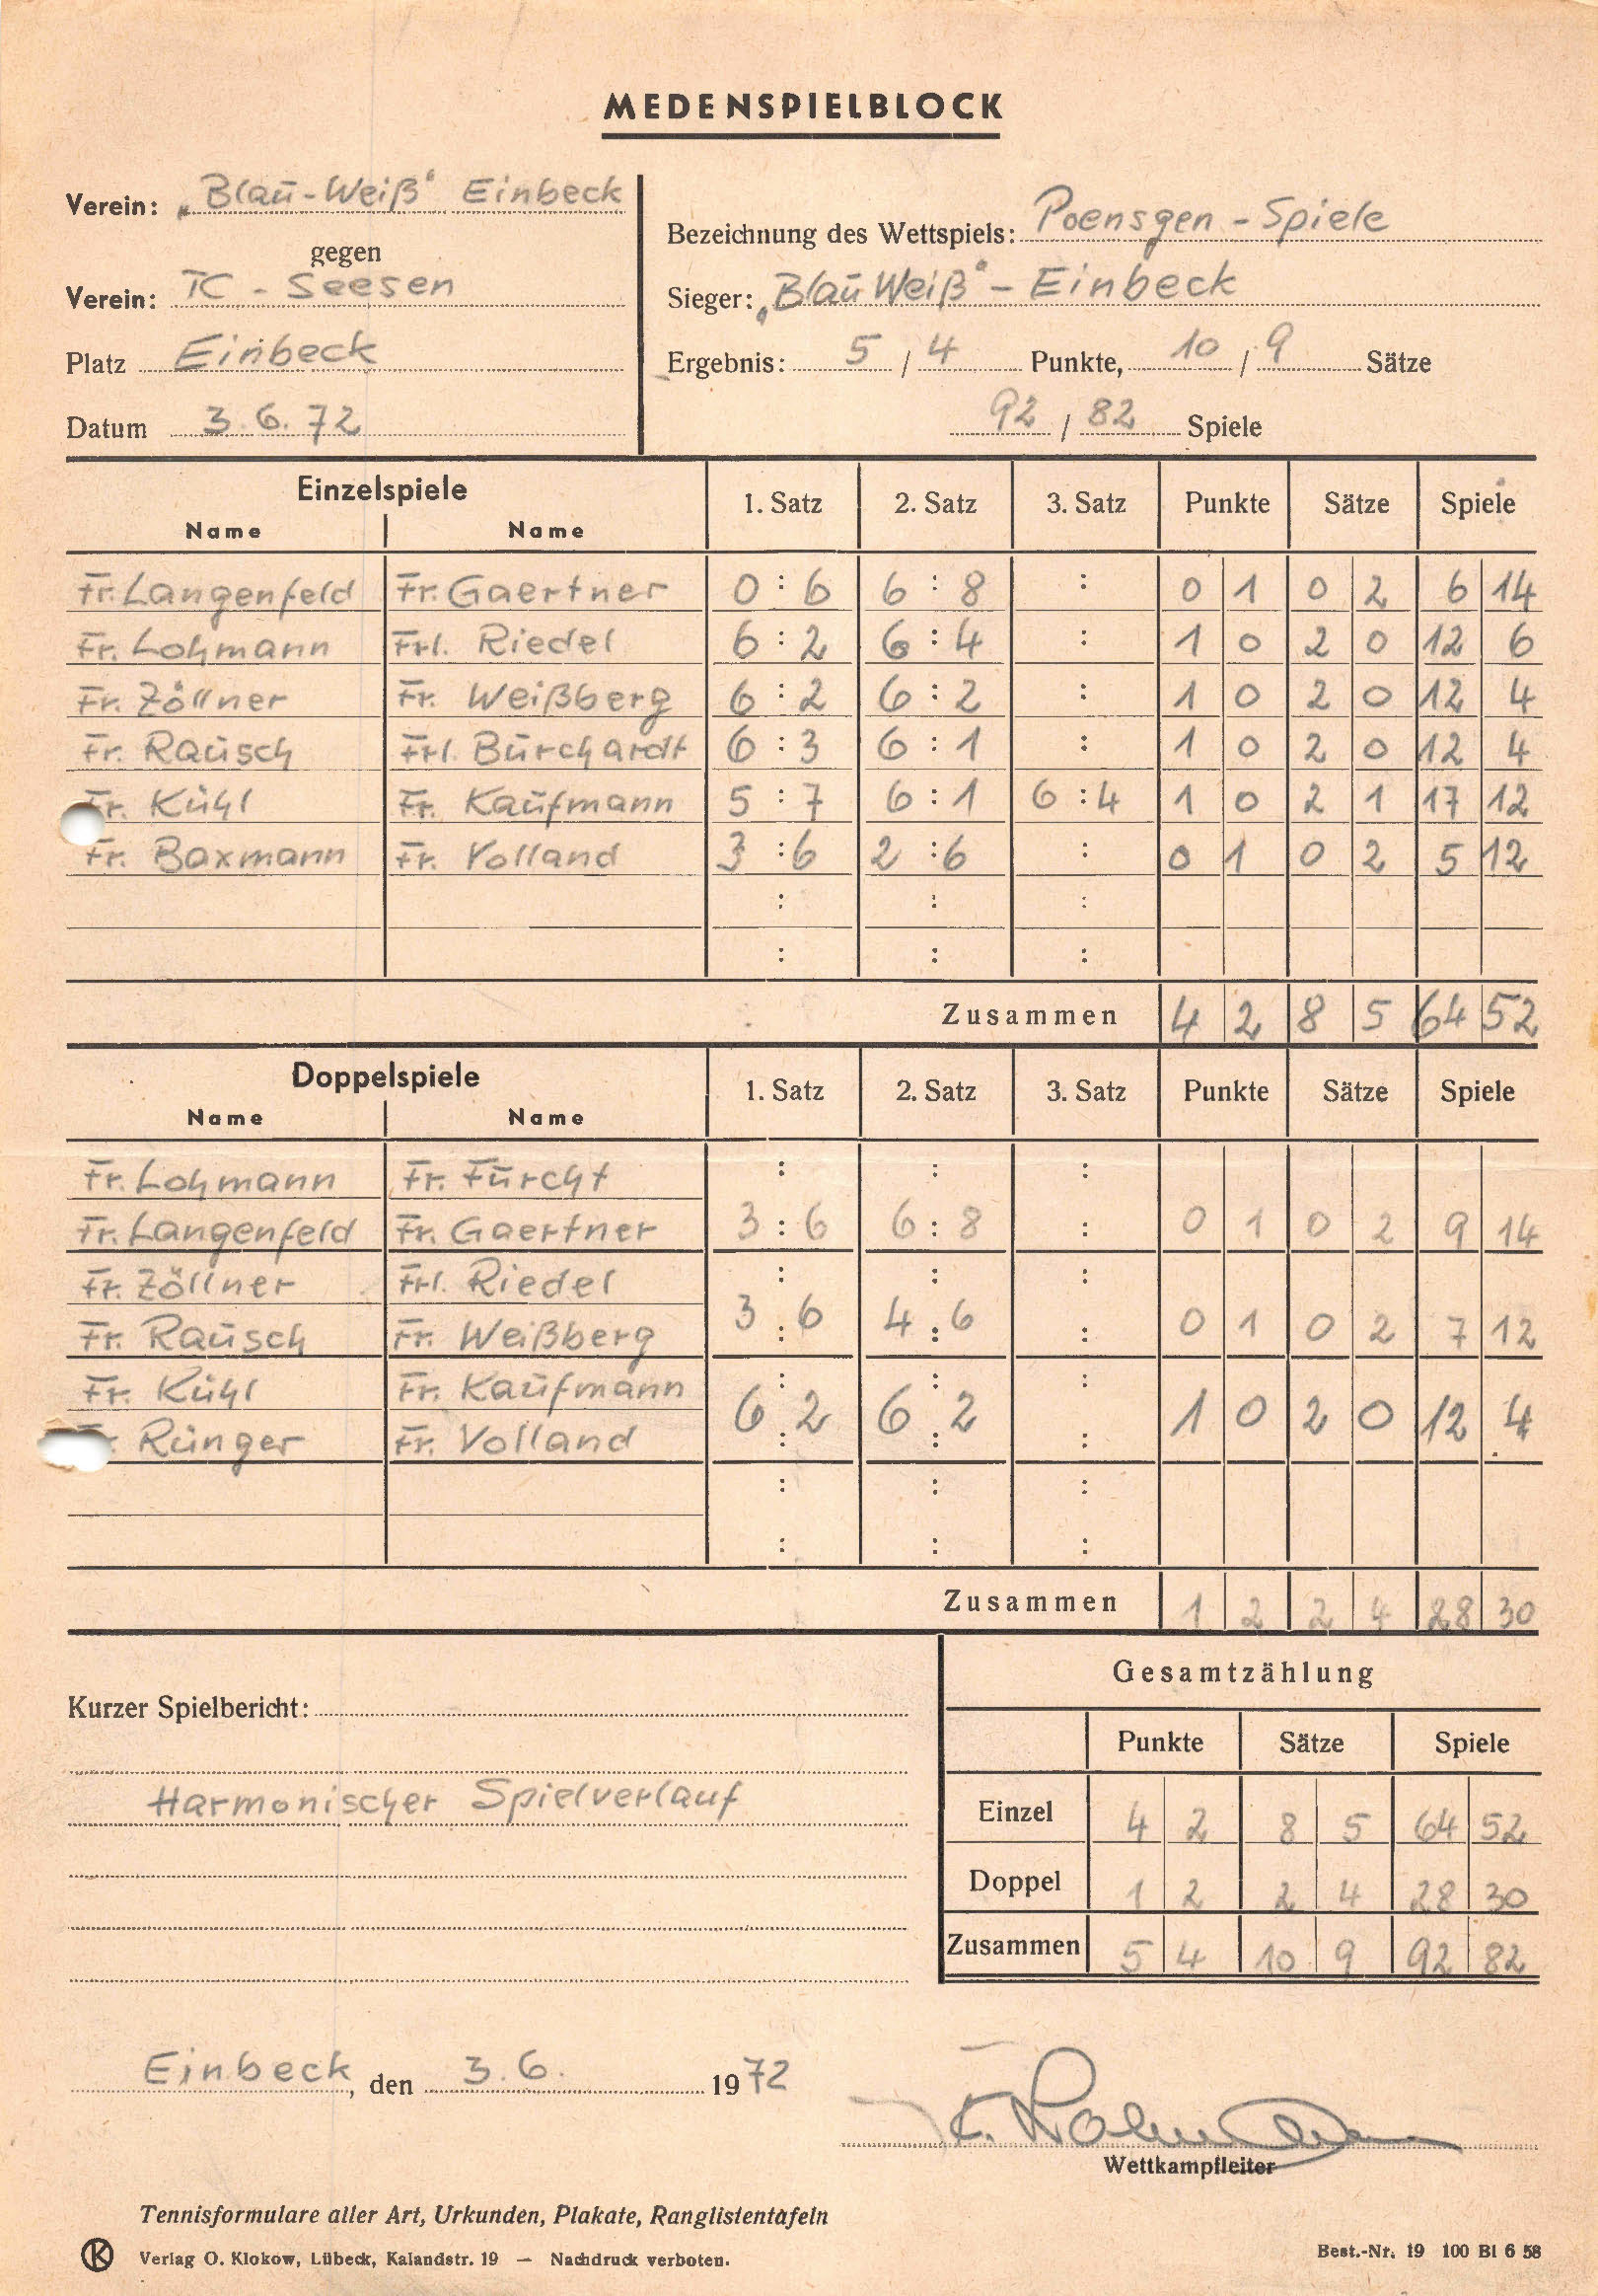 MEDENSPIELBLOCK
Verein: „Blau-Weiß" Einbeck
gegen
Verein: TC - Seesen
Platz Einbeck
Datum 3.6.72
Bezeichnung des Wettspiels: Poensgen - Spiele
Sieger: „Blau Weiß" - Einbeck
Ergebnis: 5 / 4 Punkte, 10 / 9 Sätze
92 / 82 Spiele
Einzelspiele 1. Satz 2. Satz 3. Satz Punkte Sätze Spiele
Name Name
Fr. Langenfeld Fr. Gaertner 0 : 6 6 : 8 : 0 1 0 2 6 14
Fr. Lohmann Frl. Riedel 6 : 2 6 : 4 : 1 0 2 0 12 6
Fr. Zöllner Fr. Weißberg 6 : 2 6 : 2 : 1 0 2 0 12 4
Fr. Rausch Frl. Burchardt 6 : 3 6 : 1 : 1 0 2 0 12 4
Fr. Kühl Fr. Kaufmann 5 : 7 6 : 1 6 : 4 1 0 2 1 17 12
Fr. Baxmann Fr. Volland 3 : 6 2 : 6 : 0 1 0 2 5 12
: : :
: : :
Zusammen 4 2 8 5 64 52
Doppelspiele 1. Satz 2. Satz 3. Satz Punkte Sätze Spiele
Name Name
Fr. Lohmann Fr. Furcht : : :
Fr. Langenfeld Fr. Gaertner 3 : 6 6 : 8 : 0 1 0 2 9 14
Fr. Zöllner Frl. Riedel : : :
Fr. Rausch Fr. Weißberg 3 : 6 4 : 6 : 0 1 0 2 7 12
Fr. Kühl Fr. Kaufmann : : :
Runger Fr. Volland 6 : 2 6 : 2 : 1 0 2 0 12 4
: : :
: : :
Zusammen 1 2 2 4 28 30
Kurzer Spielbericht:
Harmonischer Spielverlauf
Gesamtzählung
Punkte Sätze Spiele
Einzel 4 2 8 5 64 52
Doppel 1 2 2 4 28 30
Zusammen 5 4 10 9 92 82
Einbeck, den 3.6. 1972
Wettkampfleiter
Tennisformulare aller Art, Urkunden, Plakate, Ranglistentafeln
K Verlag O. Klokow, Lübeck, Kalandstr. 19 — Nachdruck verboten.
Best.-Nr. 19 100 Bl 6 58